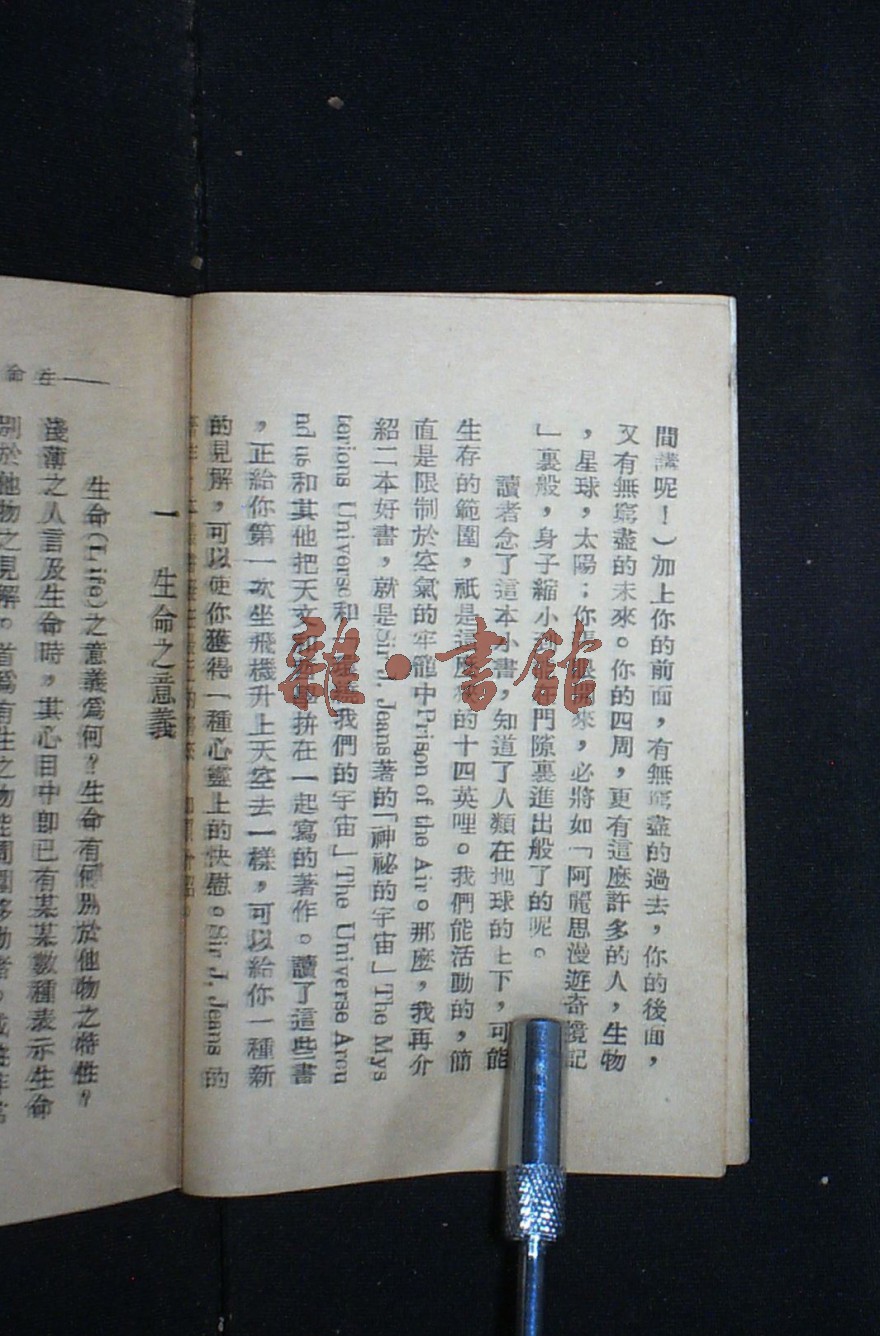 間講呢！）加上你的前面，有無窮盡的過去，你的後面，
又有無窮盡的未來。你的四周，更有這麼許多的人，生物
，星球，太陽；你 來，必將如「阿麗思漫遊奇境記
」裏般，身子縮小 門隙裏進出般了的呢。
讀者念了這本小書，知道了人類在地球的上下，可能
生存的範圍，祇是這麼 的十四英哩。我們能活動的，簡
直是限制於空氣的牢籠中Prison of the Air。那麼，我再介
紹二本好書，就是Sir J. Jeans著的「神祕的宇宙」The Mys
terious Universe和「 我們的宇宙」The Universe Arou
nd us和其他把天文 拚在一起寫的著作。讀了這些書
，正給你第一次坐飛機升上天空去一樣，可以給你一種新
的見解，可以使你獲得一種心靈上的快慰。Sir J. Jeans的
一 生命之意義
生命(Life)之意義爲何？生命有何別於他物之特性？
淺薄之人言及生命時，其心目中即已有某某數種表示生命
別於他物之見解。首爲有生之物能周圍移動者。
生命
龍・書館